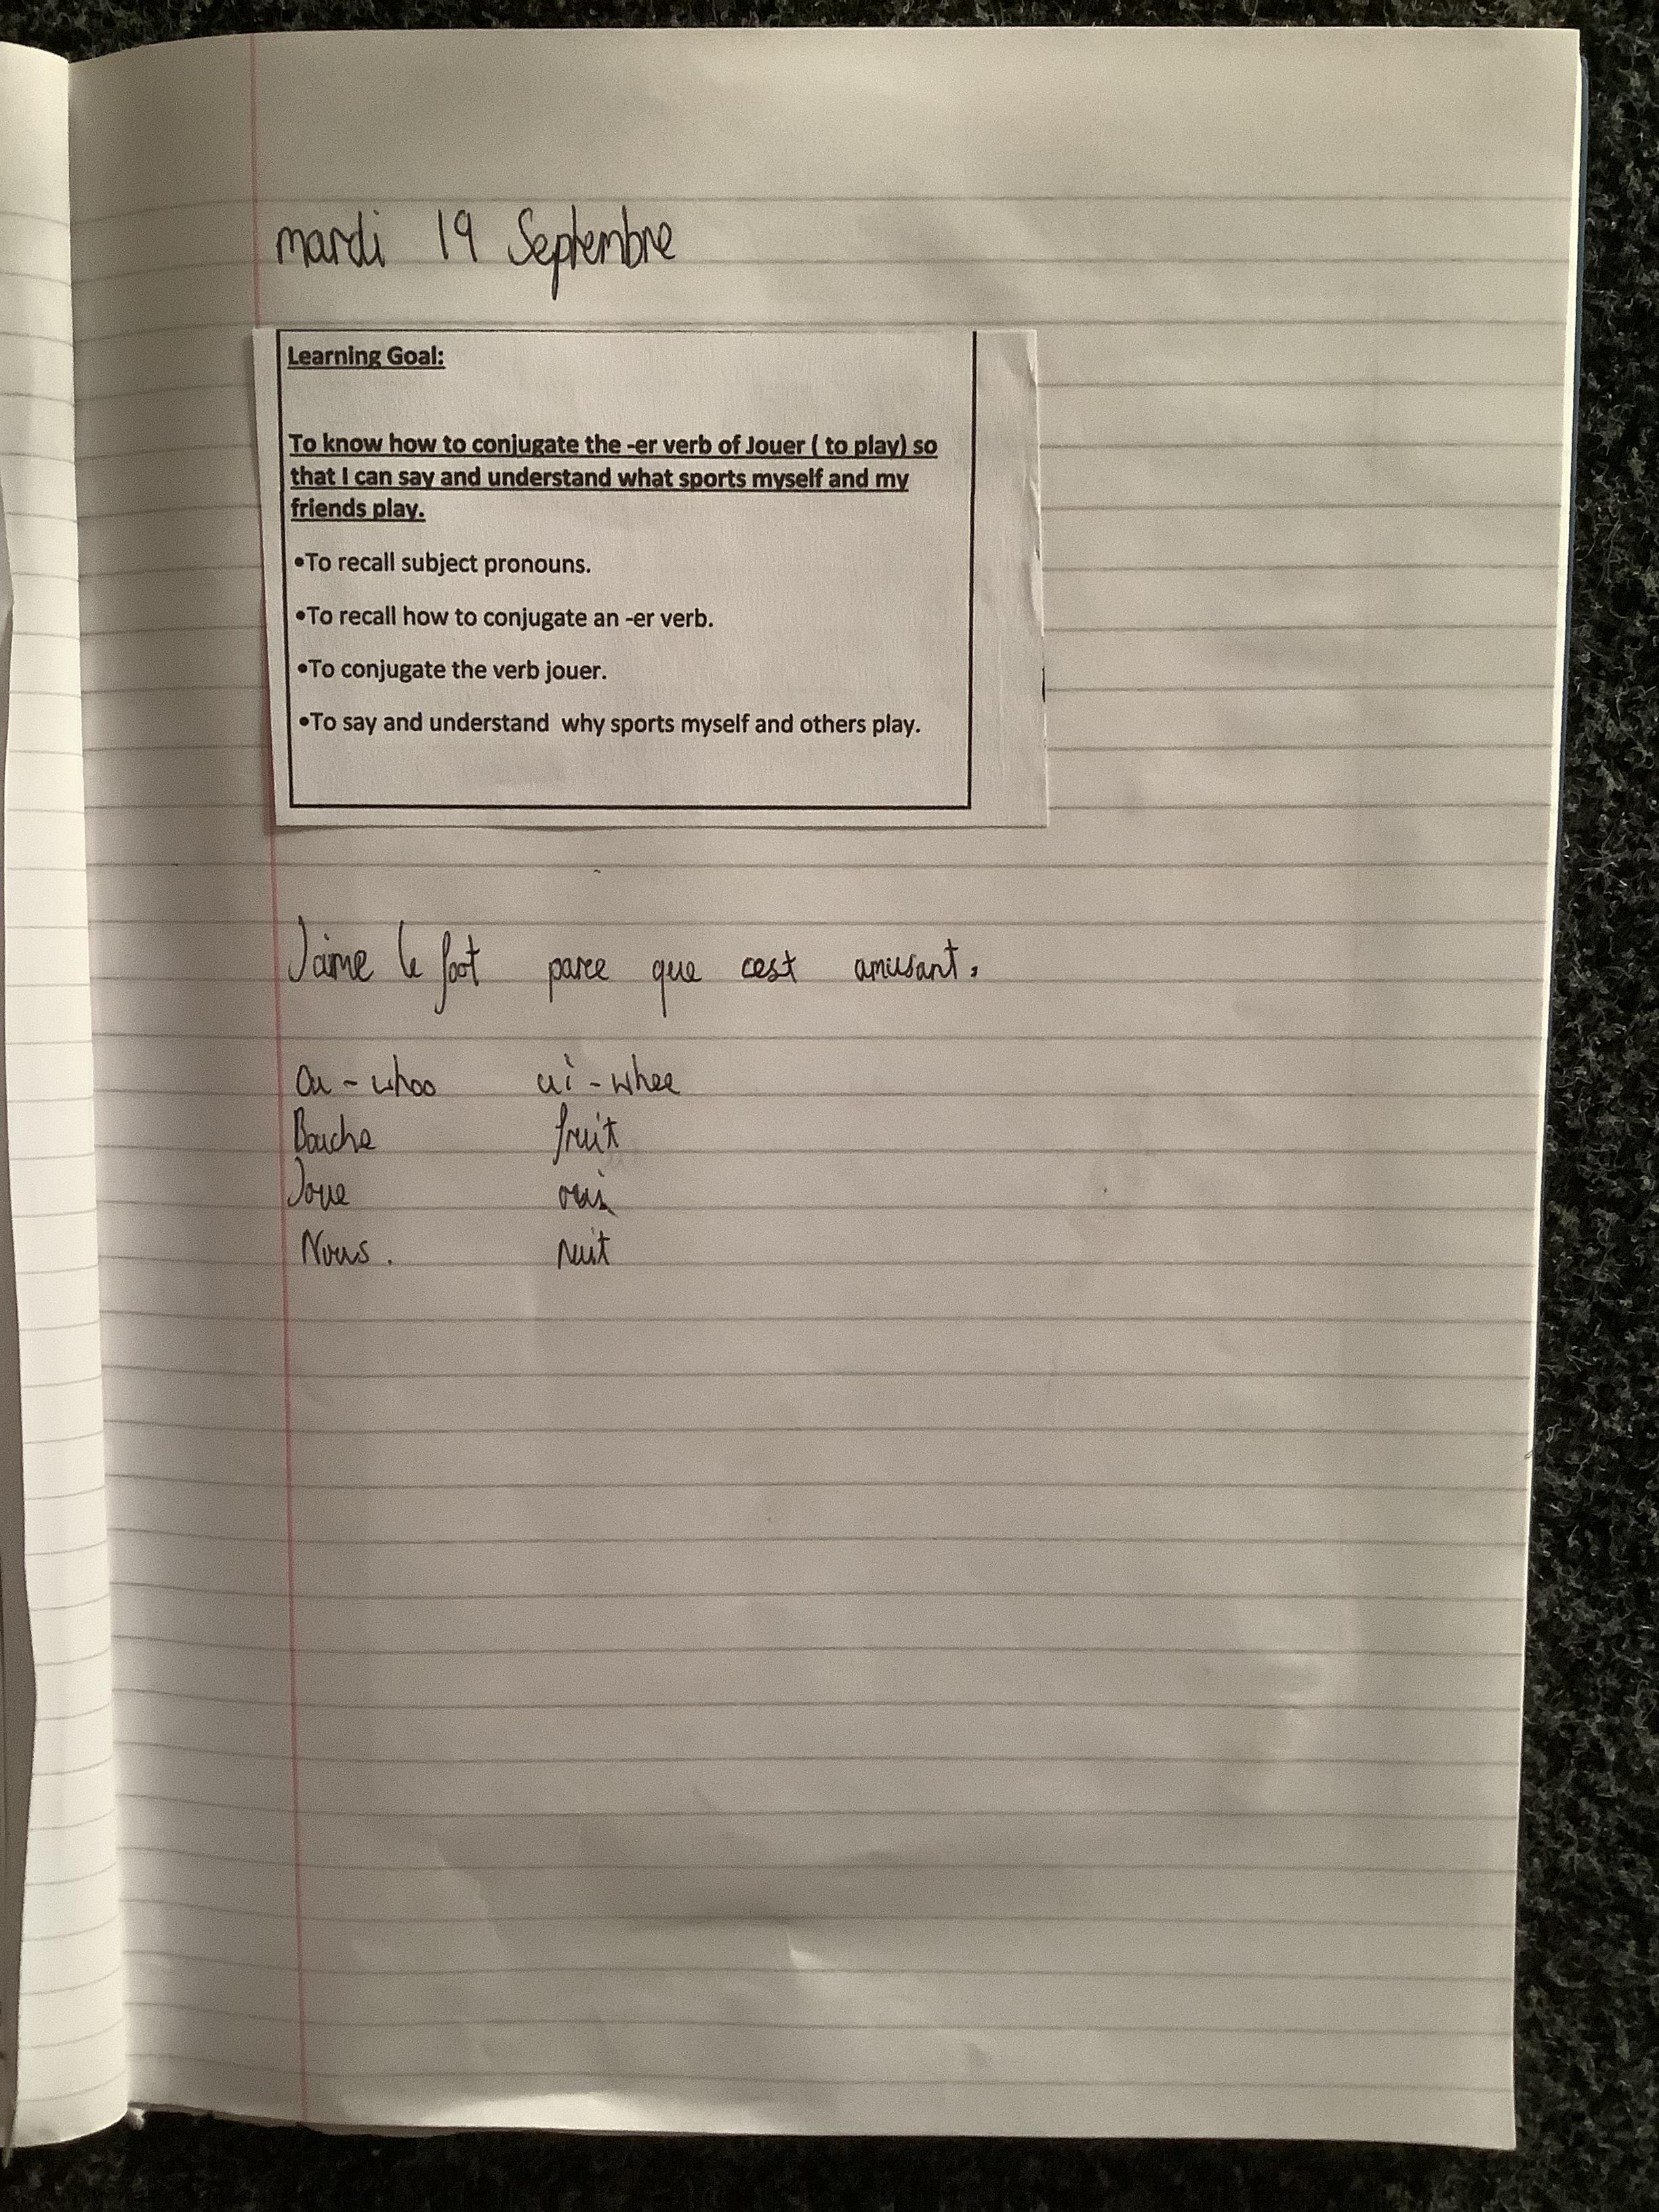 mardi 19 Septembre
Learning Goal:
To know how to conjugate the -er verb of Jouer ( to play) so
that I can say and understand what sports myself and my
friends play.
•To recall subject pronouns.
•To recall how to conjugate an -er verb.
•To conjugate the verb jouer.
•To say and understand why sports myself and others play.
J'aime le foot parce que cest amusant.
Ou - whoo ui - whee
Bouche fruit
Joue oui
Nous. nuit